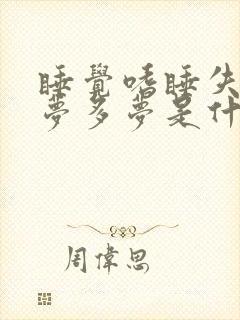 睡覺嗜睡失
夢多夢是什
周偉思